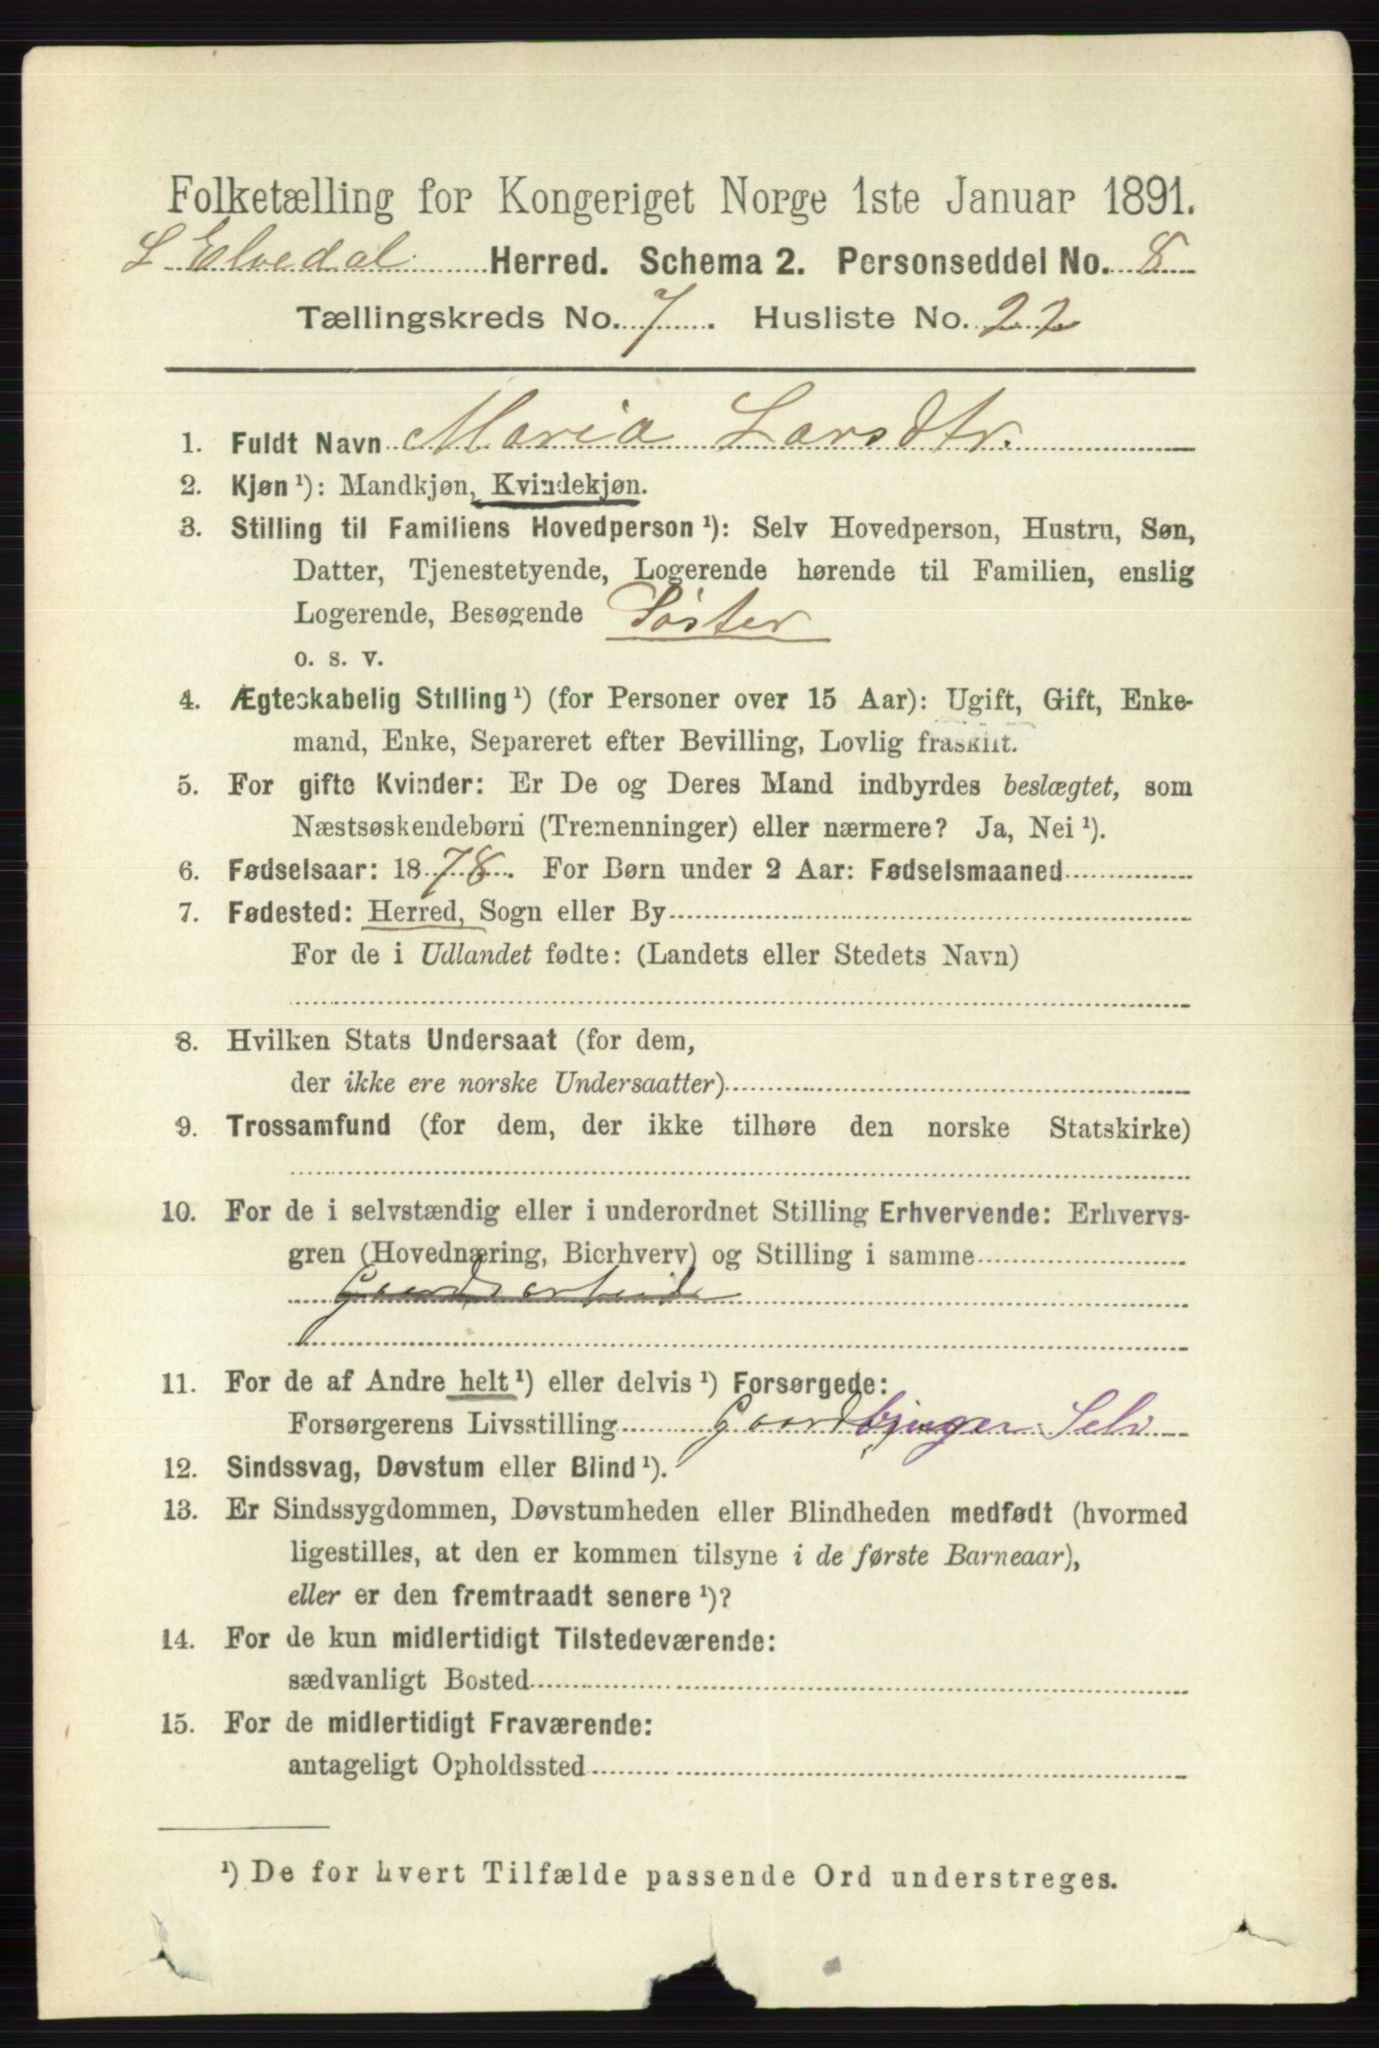 Folketælling for Kongeriget Norge 1ste Januar 1891.
S Elvedal Herred. Schema 2. Personseddel No. 8
Tællingskreds No. 7. Husliste No. 22
1. Fuldt Navn Maria Larsdtr.
2. Kjøn ¹): Mandkjøn, Kvindekjøn.
3. Stilling til Familiens Hovedperson ¹): Selv Hovedperson, Hustru, Søn,
Datter, Tjenestetyende, Logerende hørende til Familien, enslig
Logerende, Besøgende Søster
o. s. v.
4. Ægteskabelig Stilling ¹) (for Personer over 15 Aar): Ugift, Gift, Enke-
mand, Enke, Separeret efter Bevilling, Lovlig fraskilt.
5. For gifte Kvinder: Er De og Deres Mand indbyrdes beslægtet, som
Næstsøskendebørn (Tremenninger) eller nærmere? Ja, Nei ¹).
6. Fødselsaar: 1878. For Børn under 2 Aar: Fødselsmaaned
7. Fødested: Herred, Sogn eller By
For de i Udlandet fødte: (Landets eller Stedets Navn)
8. Hvilken Stats Undersaat (for dem,
der ikke ere norske Undersaatter)
9. Trossamfund (for dem, der ikke tilhøre den norske Statskirke)
10. For de i selvstændig eller i underordnet Stilling Erhvervende: Erhvervs-
gren (Hovednæring, Bierhverv) og Stilling i samme
Gaardsarbeide
11. For de af Andre helt ¹) eller delvis ¹) Forsørgede:
Forsørgerens Livsstilling Gaardbruger Selv
12. Sindssvag, Døvstum eller Blind ¹).
13. Er Sindssygdommen, Døvstumheden eller Blindheden medfødt (hvormed
ligestilles, at den er kommen tilsyne i de første Barneaar),
eller er den fremtraadt senere ¹)?
14. For de kun midlertidigt Tilstedeværende:
sædvanligt Bosted
15. For de midlertidigt Fraværende:
antageligt Opholdssted
¹) De for hvert Tilfælde passende Ord understreges.